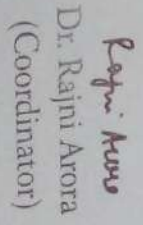 Rajni Arora
Dr. Rajni Arora
(Coordinator)